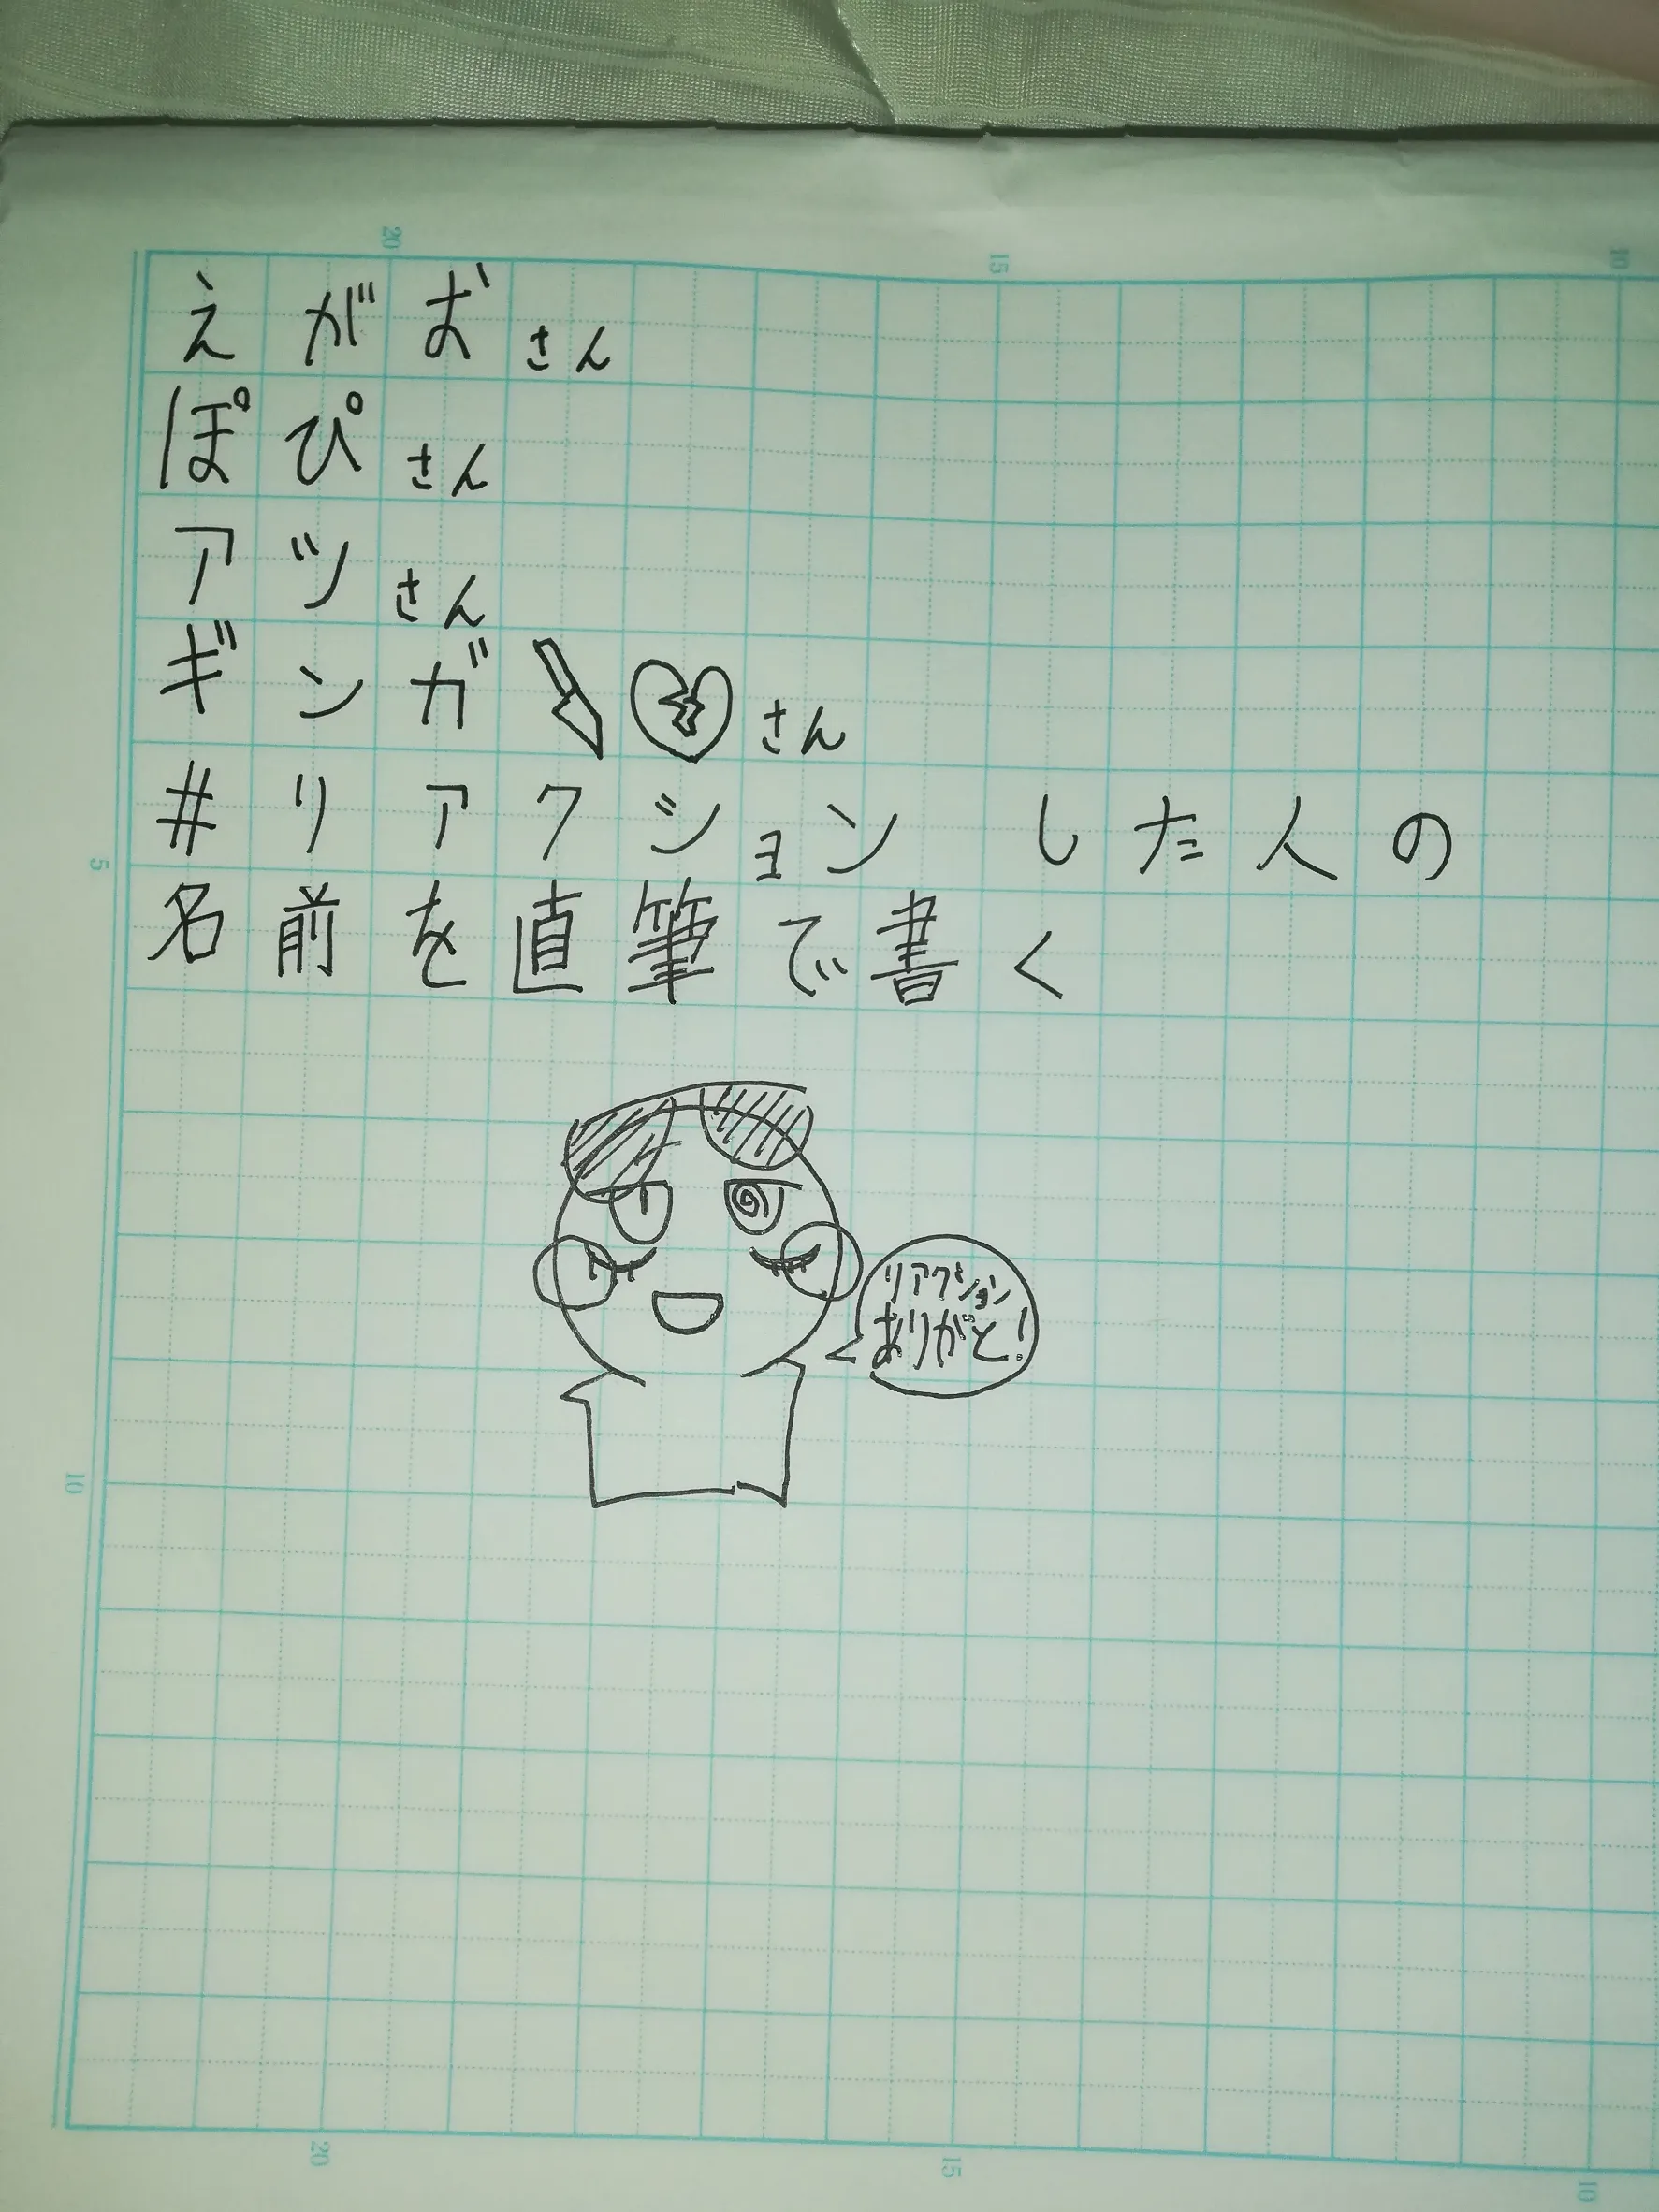 えがおさん
ぽぴさん
アツさん
ギンガ🔪💔さん
#リアクションした人の
名前を直筆で書く
リアクション
ありがと!
20
15
10
5
10
20
15
10